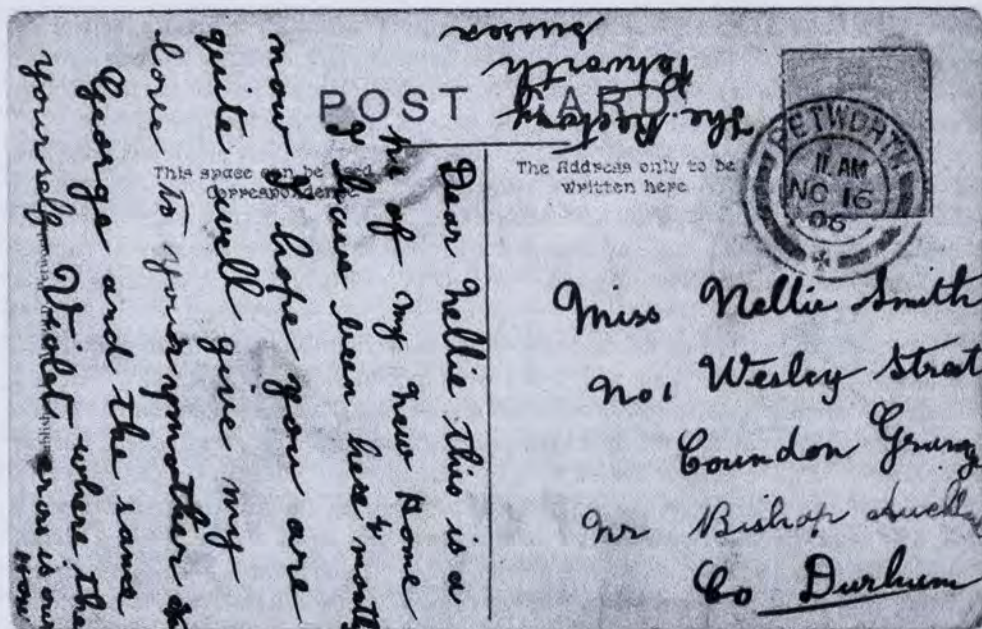 POST CARD
This space can be used
Correspondence
The Address only to be
written here
PETWORTH
11 AM
NO 16
06
The Rectory
Petworth
Sussex
Dear Nellie this is a
of my new Home
I have been here 4 month
now I hope you are
quite well give my
love to your mother &
George and the same
yourself Violet where the
cross is our
Miss Nellie Smith
No 1 Wesley Street
Coundon Grang
nr Bishop Auckla
Co Durham